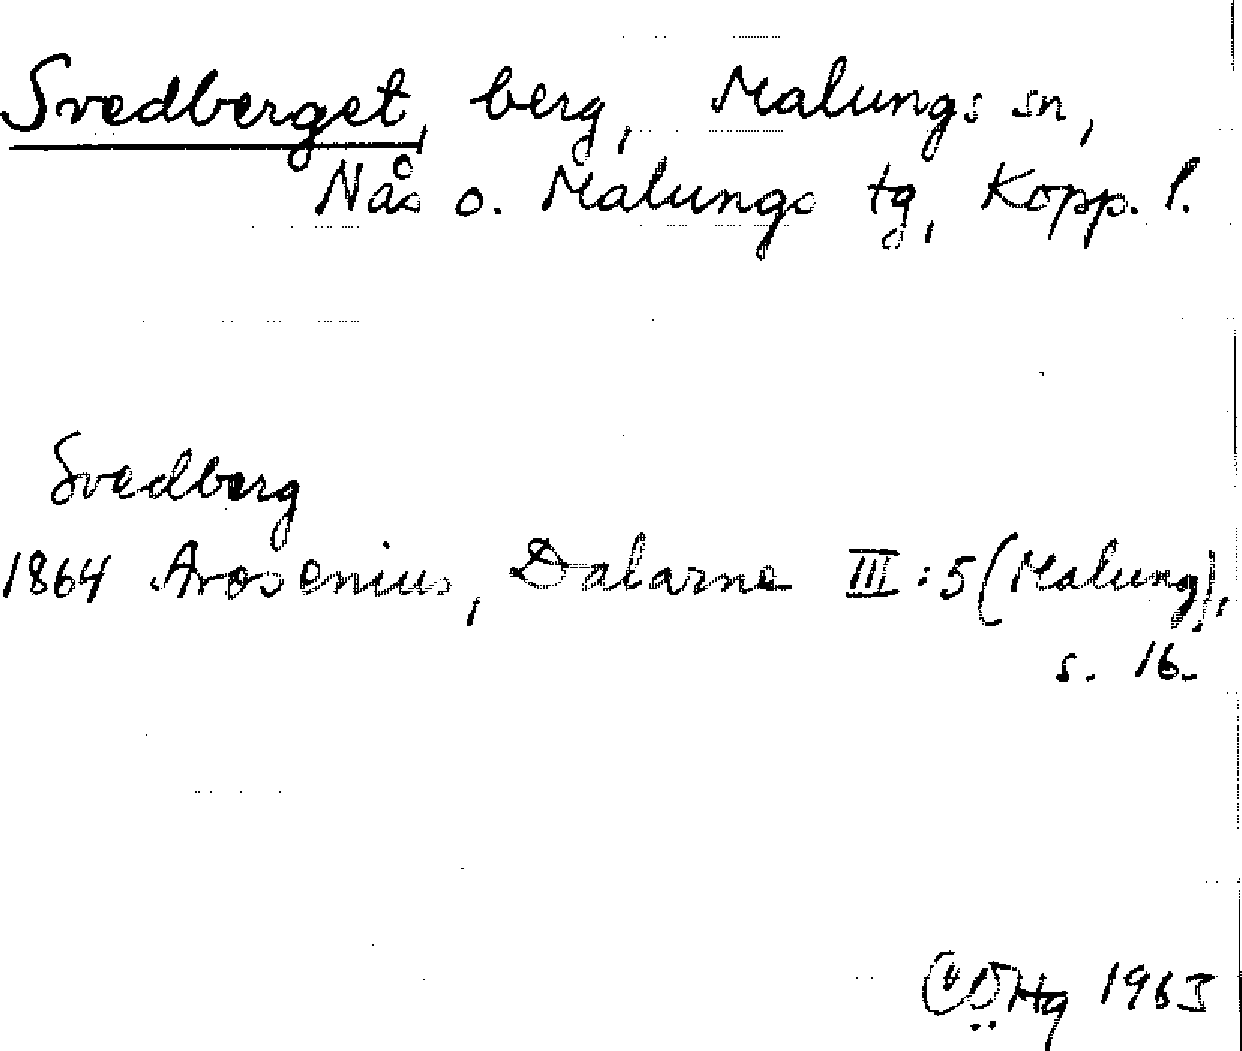 Svedberget, berg, Malungs sn,
Nås o. Malungs tg, Kopp. l.
Svedberg
1864 Arosenius, Dalarne III:5 (Malung),
s. 16.
1963